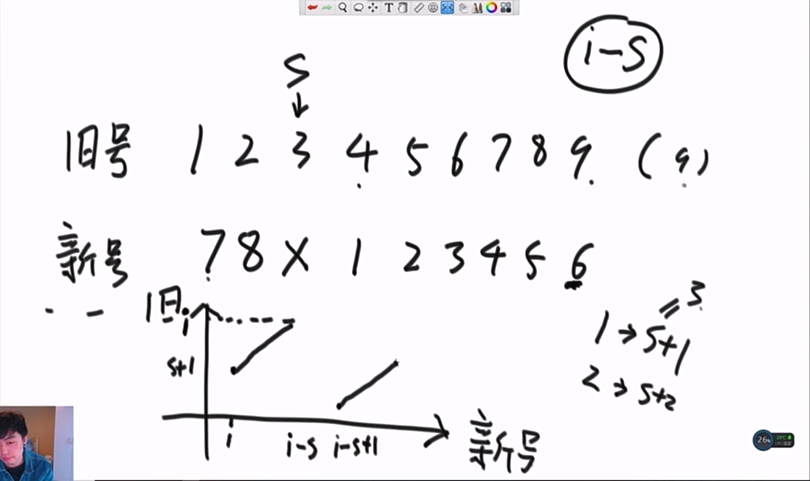 i-s
s
旧号 1 2 3 4 5 6 7 8 9 (9)
新号 7 8 X 1 2 3 4 5 6
旧
i
s+1
1 i-s i-s+1
新号
3
1→s+1
2→s+2